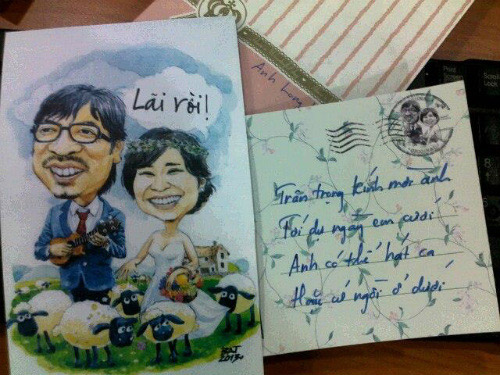 Lãi rồi!
2013
Anh Long
Trân trọng kính mời anh
Tới dự ngày em cưới
Anh có thể hát ca
Hoặc cứ ngồi ở dưới